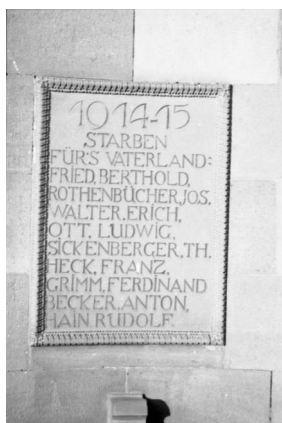 1914-15
STARBEN
FÜR'S VATERLAND:
FRIED, BERTHOLD,
ROTHENBÜCHER, JOS.
WALTER, ERICH,
OTT, LUDWIG,
SICKENBERGER, TH.
HECK, FRANZ,
GRIMM, FERDINAND
BECKER, ANTON,
HAIN RUDOLF.